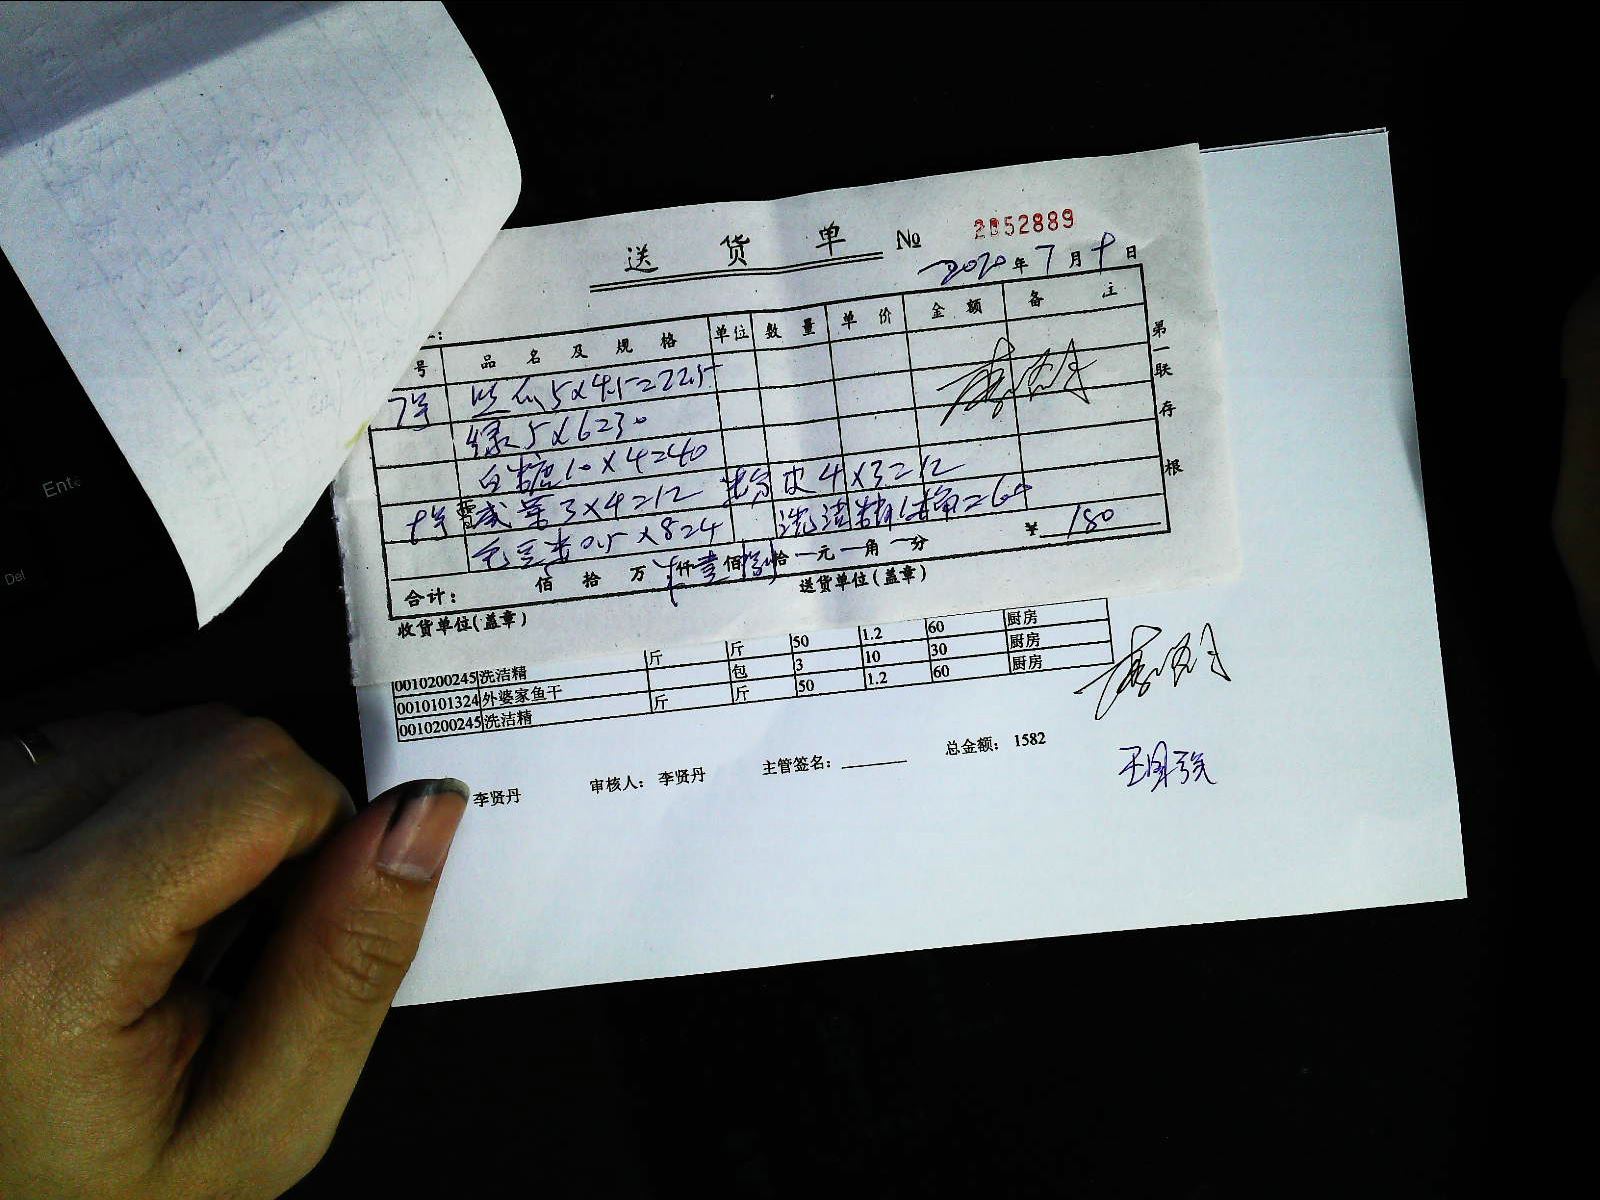 送 货 单 № 2052889
2020年7月 日
号 品名及规格 单位 数量 单价 金额 备注
7号 丝瓜5×4.5=22.5
绿 5×6=30
白糖10×4=40
3×4=12 皮4×3=12
0.5×8=24 洗洁精1桶=60
合计: 佰 拾 万 仟壹佰捌拾 元 角 分 ¥ 180
收货单位(盖章) 送货单位(盖章)
第一联 存根
0010200245 洗洁精 斤 斤 50 1.2 60 厨房
0010101324 外婆家鱼干 包 3 10 30 厨房
0010200245 洗洁精 斤 斤 50 1.2 60 厨房
李贤丹 审核人: 李贤丹 主管签名: 总金额: 1582
Ent
Del